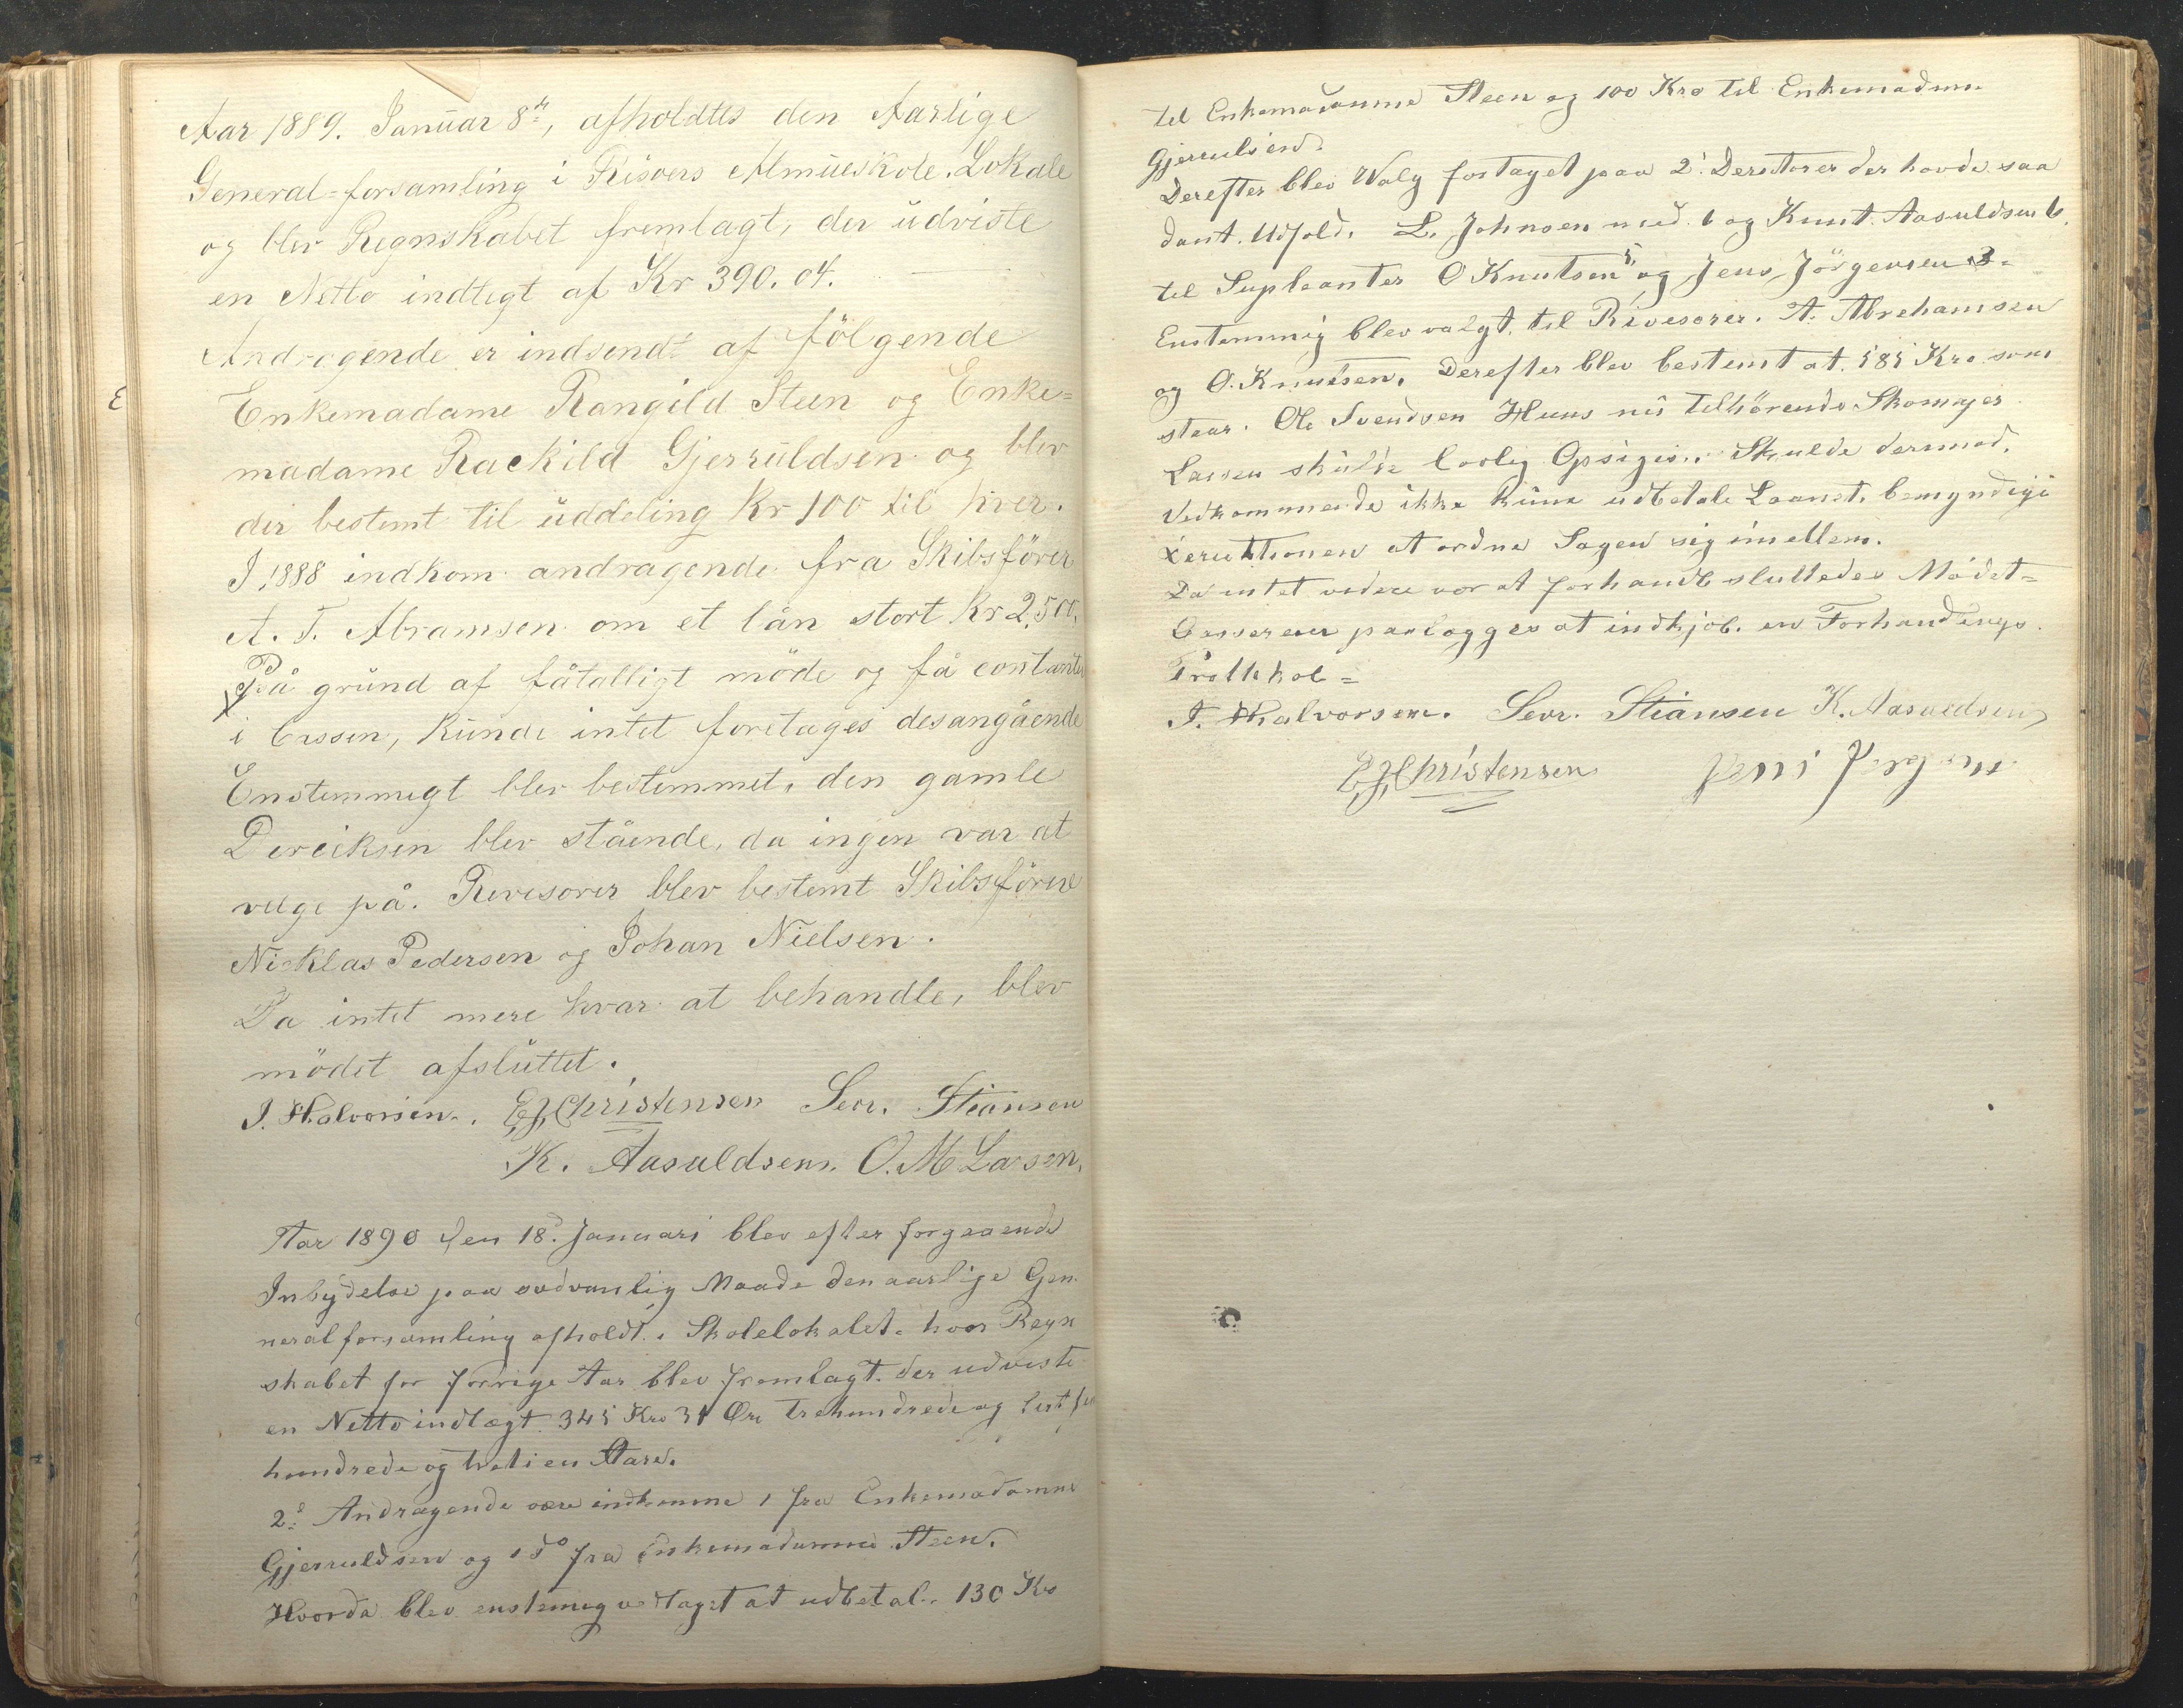 Aar 1889. Januar 8de, afholdtes den Aarlige
General-forsamling i Risøers Almueskole-Lokale
og blev Regnskabet fremlagt, der udviste
en Netto indtegt af Kr 390. 04.
Andragende er indsendt af følgende
Enkemadame Rangild Steen og Enke=
madame Rackild Gjerruldsen og blev
der bestemt til uddeling Kr 100 til hver.
I 1888 indkom andragende fra Skibsfører
A. T. Abramsen om et lån stort Kr 2,500,
På grund af fåtalligt møde og få contante
i Cassen, Kunde intet foretages desangående
Enstemmigt blev bestemmet, den gamle
Dereiksen blev stående, da ingen var at
velge på. Revisorer blev bestemt Skibsførere
Nicklas Pedersen og Johan Nielsen.
Da intet mere hvar at behandle, blev
mødet afsluttet.
J. Halvorsen. E, J, Christensen Sevr. Stiansen
K. Aasuldsen. O. M Larsen,
Aar 1890 den 18d Januari blev efter forgaaende
Inbydelse paa sedvanlig Maade den aarlige Gen
neralforsamling afholdt i Skolelokalet. hvor Regn
skabet for forrige Aar blev fremlagt. der udviste
en Netto indtægt 345 Kro 31 Øre Trehundrede og
hundrede og treti en Aare.
2de Andragende være indkomne 1 fra Enkemadamme
Gjerruldsen og 1 do fra Enkemadamme Steen.
Hvorda blev enstemig vedtaget at udbetale 130 Kro
til Enkemadamme Steen og 100 Kro til Enkemadamme
Gjerrulsen.
Derefter blev Walg fortaget paa 2. Derektorer der havde saa
dant Udfold. L. Johnsen med 6 og Knut Aasuldsen 6.
til Supleanter O Knutsen 5 og Jens Jörgensen 3=
Enstemmig blev valgt til Rivesorer. A. Abrehamsen
og O. Knutsen. Derefter blev bestemt at 585 Kro som
staar. Ole Svendsen Huus nu Tilhörende Skomager
Larsen skulde lovlig Opsiges. Skulde dermod.
Vedkommende ikke kune udbetale Laanet. bemyndige
Derektionen at ordne Sagen sig imellem.
Da intet videre vor at forhandle sluttedes Mödet=
Cassereren paalegges at indkjøb. en Forhandlings.
Protkkol=
J. Halvorsen. Sevr. Stiansen K. Aasuldsen
E, J, Christensen Jens Jørgens